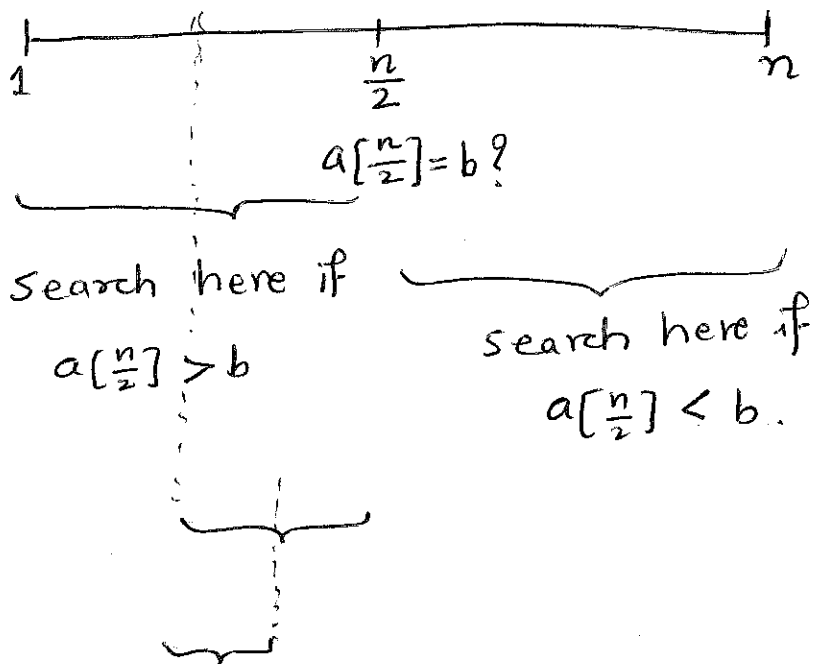 1 n/2 n
a[n/2] = b?
search here if
a[n/2] > b
search here if
a[n/2] < b.